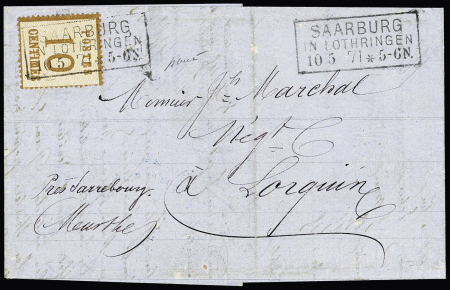 SAARBURG
IN LOTHRINGEN
5-6N.
POSTES
10
CENTIMES
SAARBURG
IN LOTHRINGEN
10 5 71 * 5-6N.
Monsieur Jh Marchal
Négt
à Lorquin
Près Sarrebourg
(Meurthe)